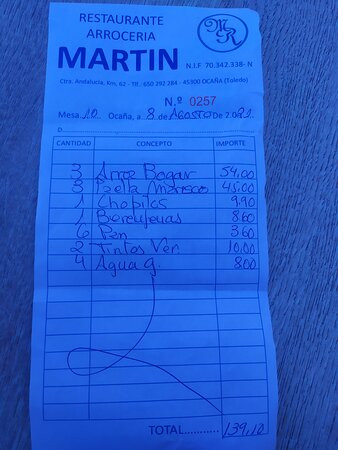 RESTAURANTE
ARROCERIA
MARTIN
MR
N.I.F 70.342.338-N
Ctra. Andalucía, Km, 62 - Tlf. 650 292 284 - 45300 OCAÑA (Toledo)
N.º 0257
Mesa 10 Ocaña, a 8 de AGOSTO de 2.021
D
CANTIDAD CONCEPTO IMPORTE
3 Arroz Bogav 54,00
3 Paella Marisco 45,00
1 Chopitos 9,90
1 Berenjenas 8,60
6 Pan 3,60
2 Tintos Ver 10,00
4 Agua g. 8,00
TOTAL 139,10